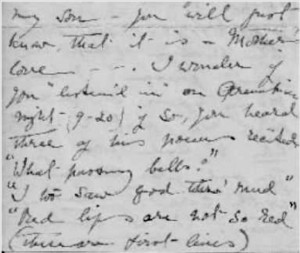 my son – you will just
know, that it is a Mother's
love – – . I wonder if
you "listen'd in" on Armistice
night – (9-20) if so, you heard
three of his poems recited
"What passing bells?"
"I too saw god thro' mud"
"Red lips are not so red"
(these are first-lines)